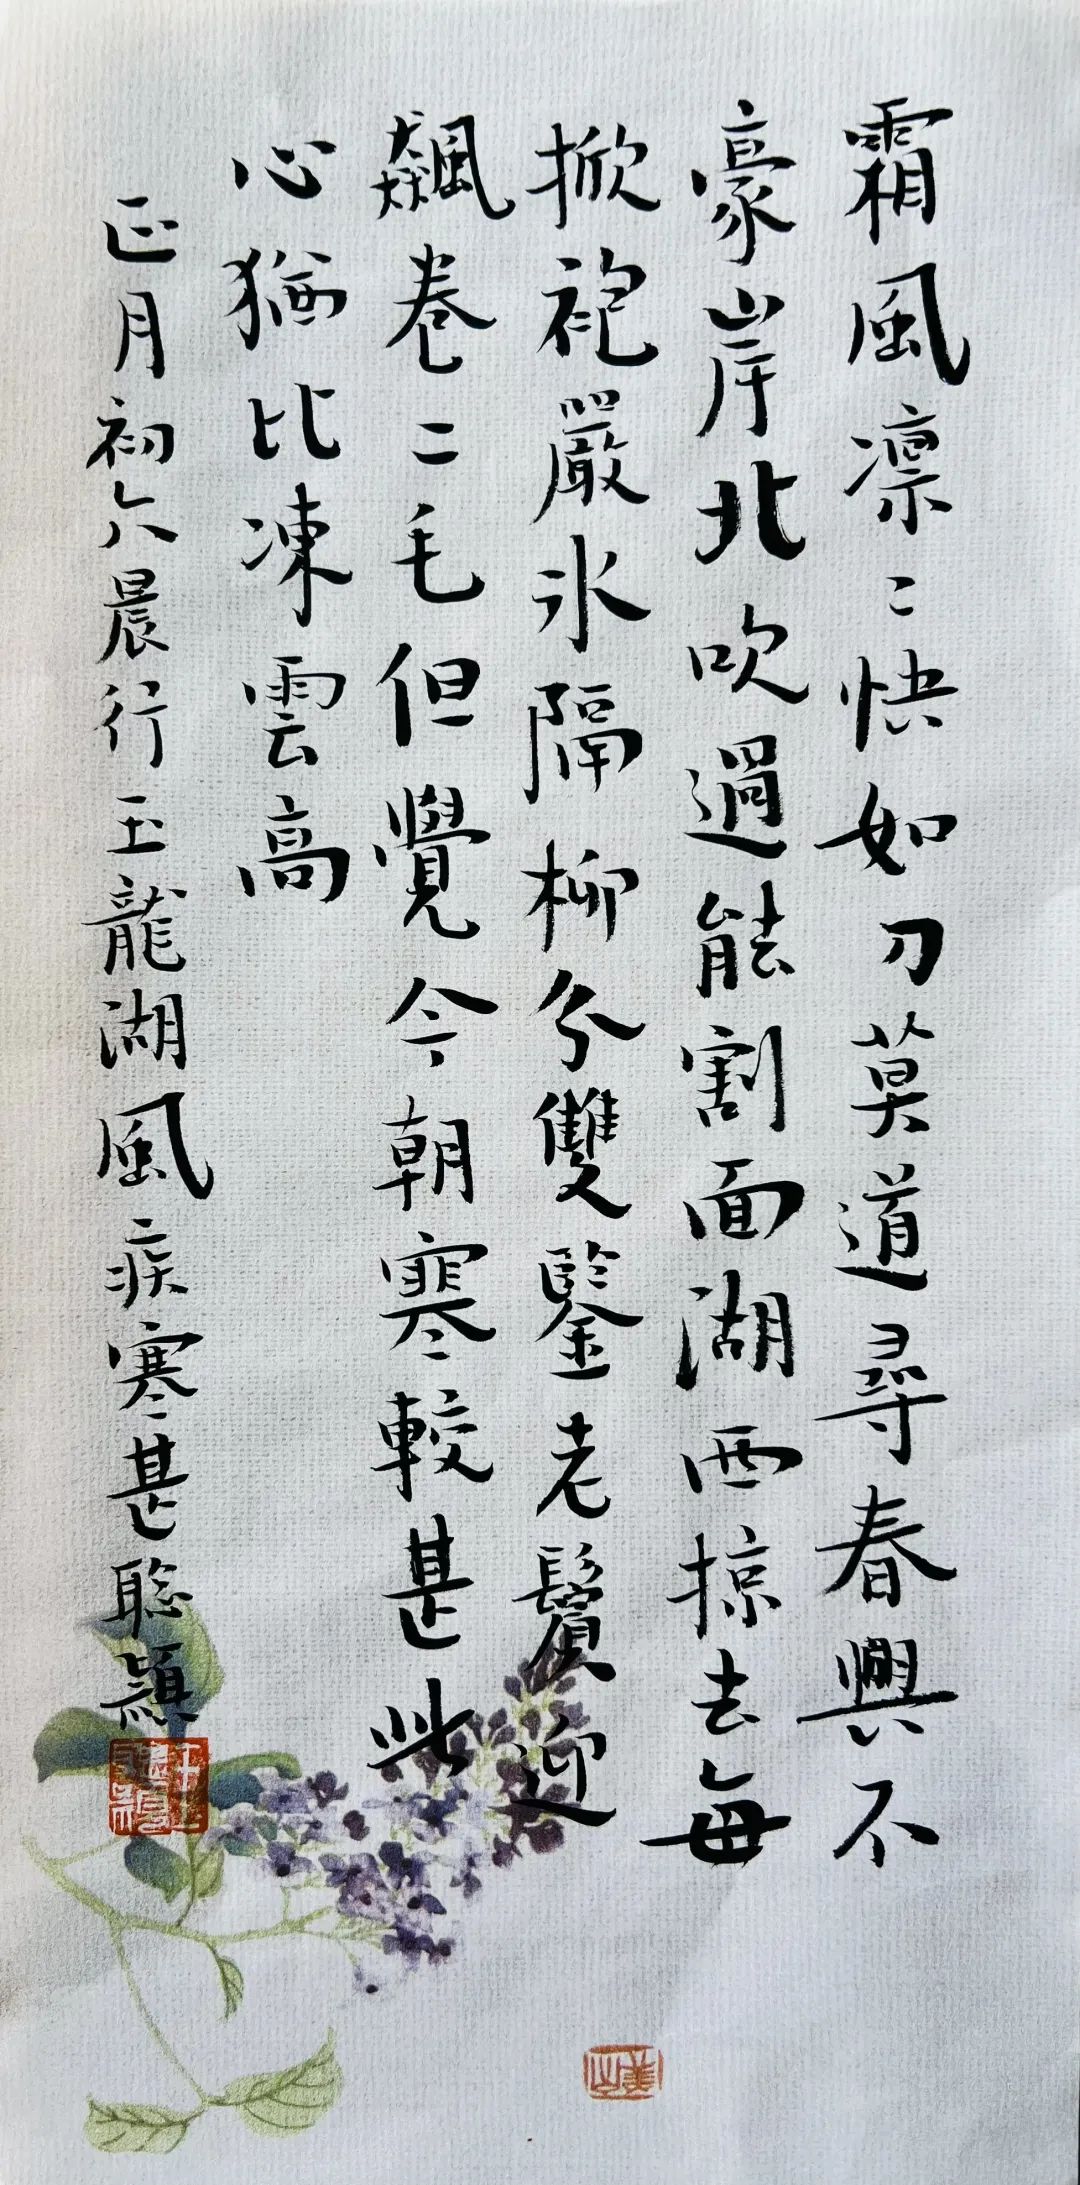 霜風凛〻快如刀莫道尋春興不
豪岸北吹過能割面湖西掠去每
掀袍嚴氷隔柳分雙鑒老鬢迎
飆卷二毛但覺今朝寒較甚此
心猶比凍雲高
正月初六晨行玉龍湖風疾寒甚聡穎